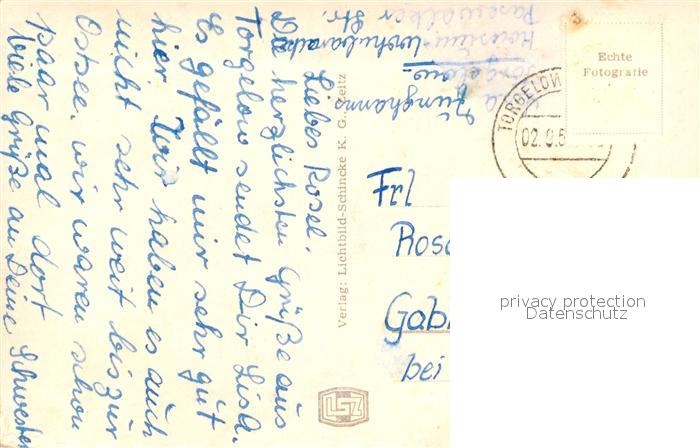 Liebes Rosel.
Die herzlichsten Grüße aus
Torgelow sendet Dir Lisa.
Es gefällt mir sehr gut
hier. Wir haben es auch
nicht sehr weit bis zur
Ostsee. Wir waren schon
paar mal dort
Viele Grüße an Deine Schwester
Junghanns
Torgelow
Pasewalker Str.
Verlag: Lichtbild-Schincke K. G., Zeitz
LSZ
Echte
Fotografie
TORGELOW
02.9.5
Frl
Ros
Gab
bei
privacy protection
Datenschutz